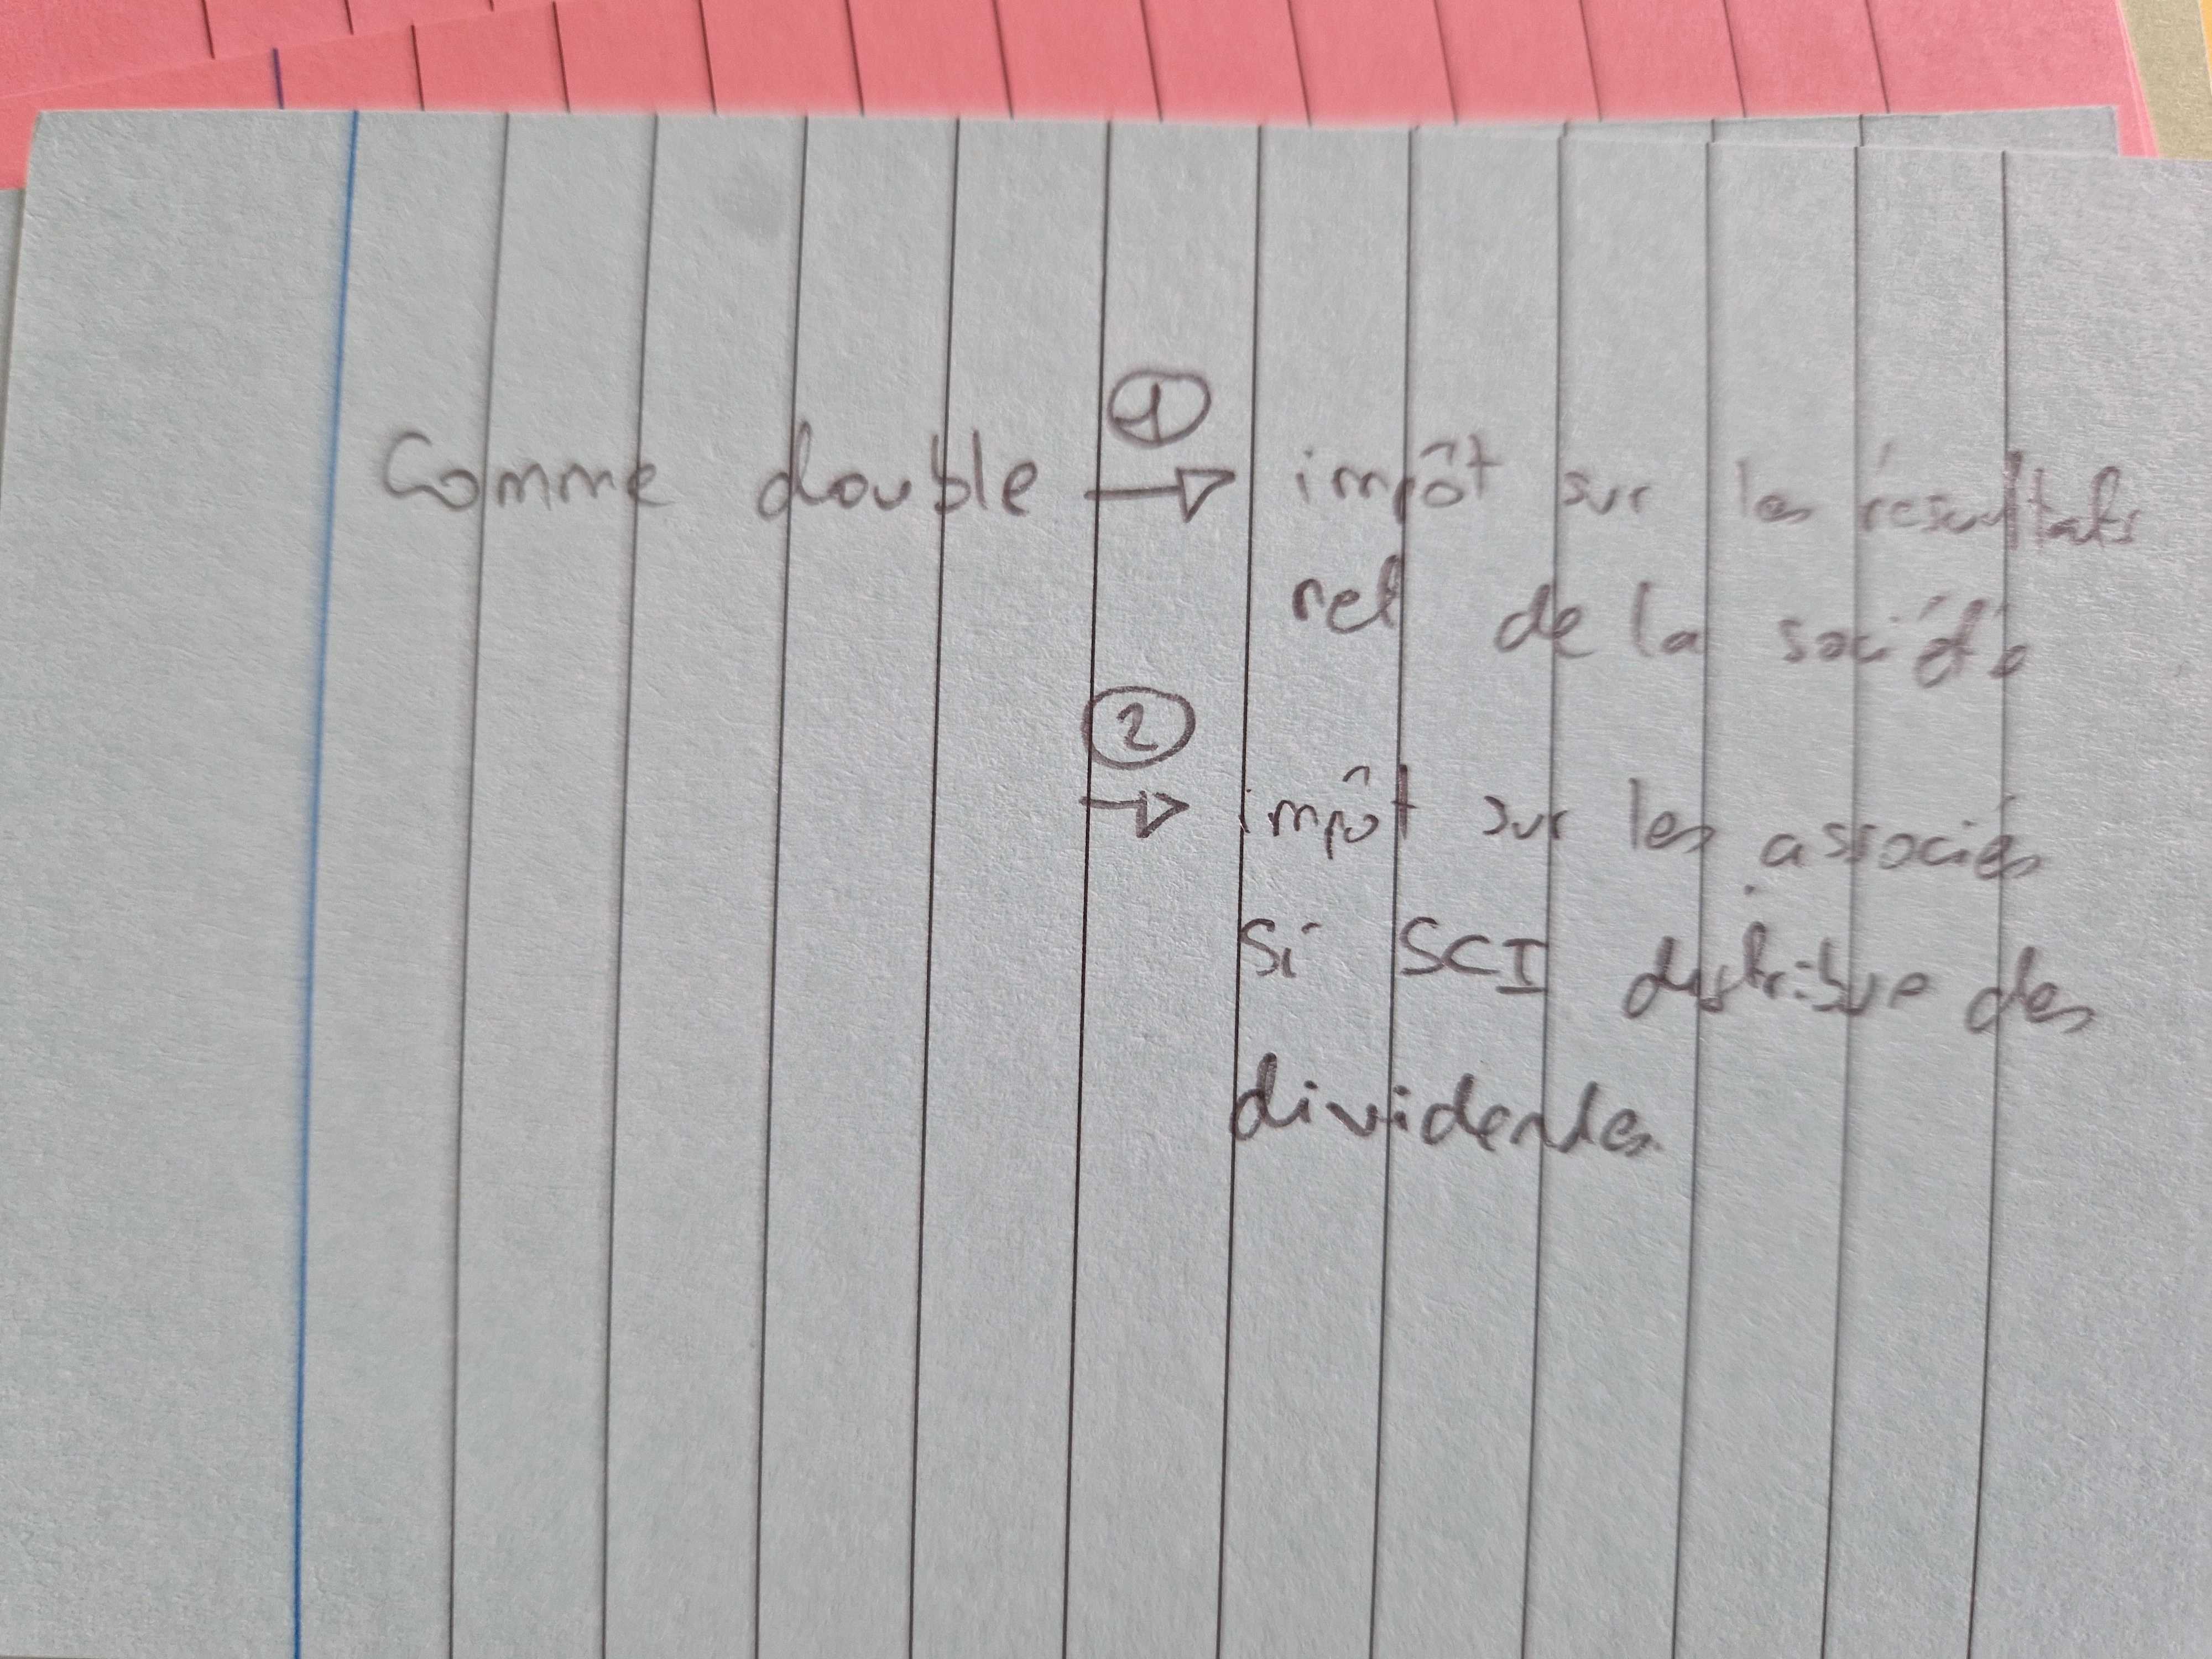 ①
Comme double → impôt sur les résultats
net de la société
②
→ impôt sur les associés
Si SCI distribue des
dividendes